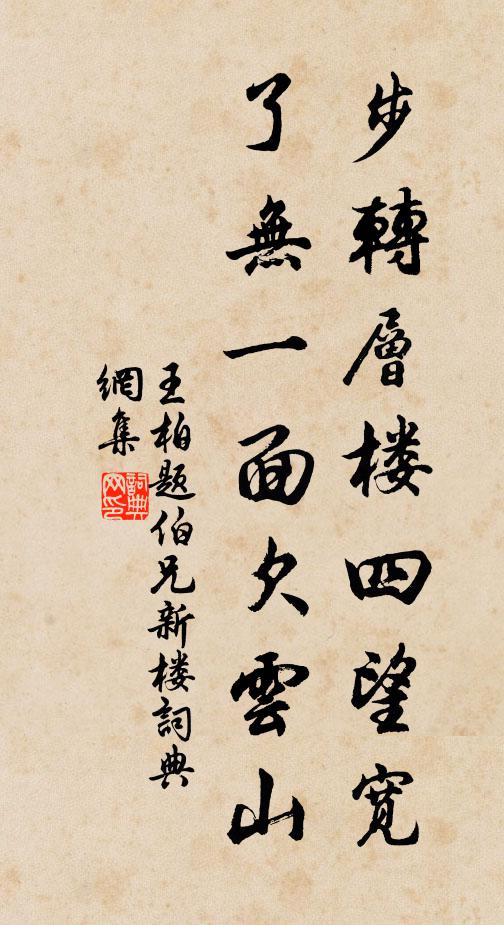 步轉層楼四望寬
了無一面欠雲山
王柏題伯兄新楼詞典
網集
詞典
网印